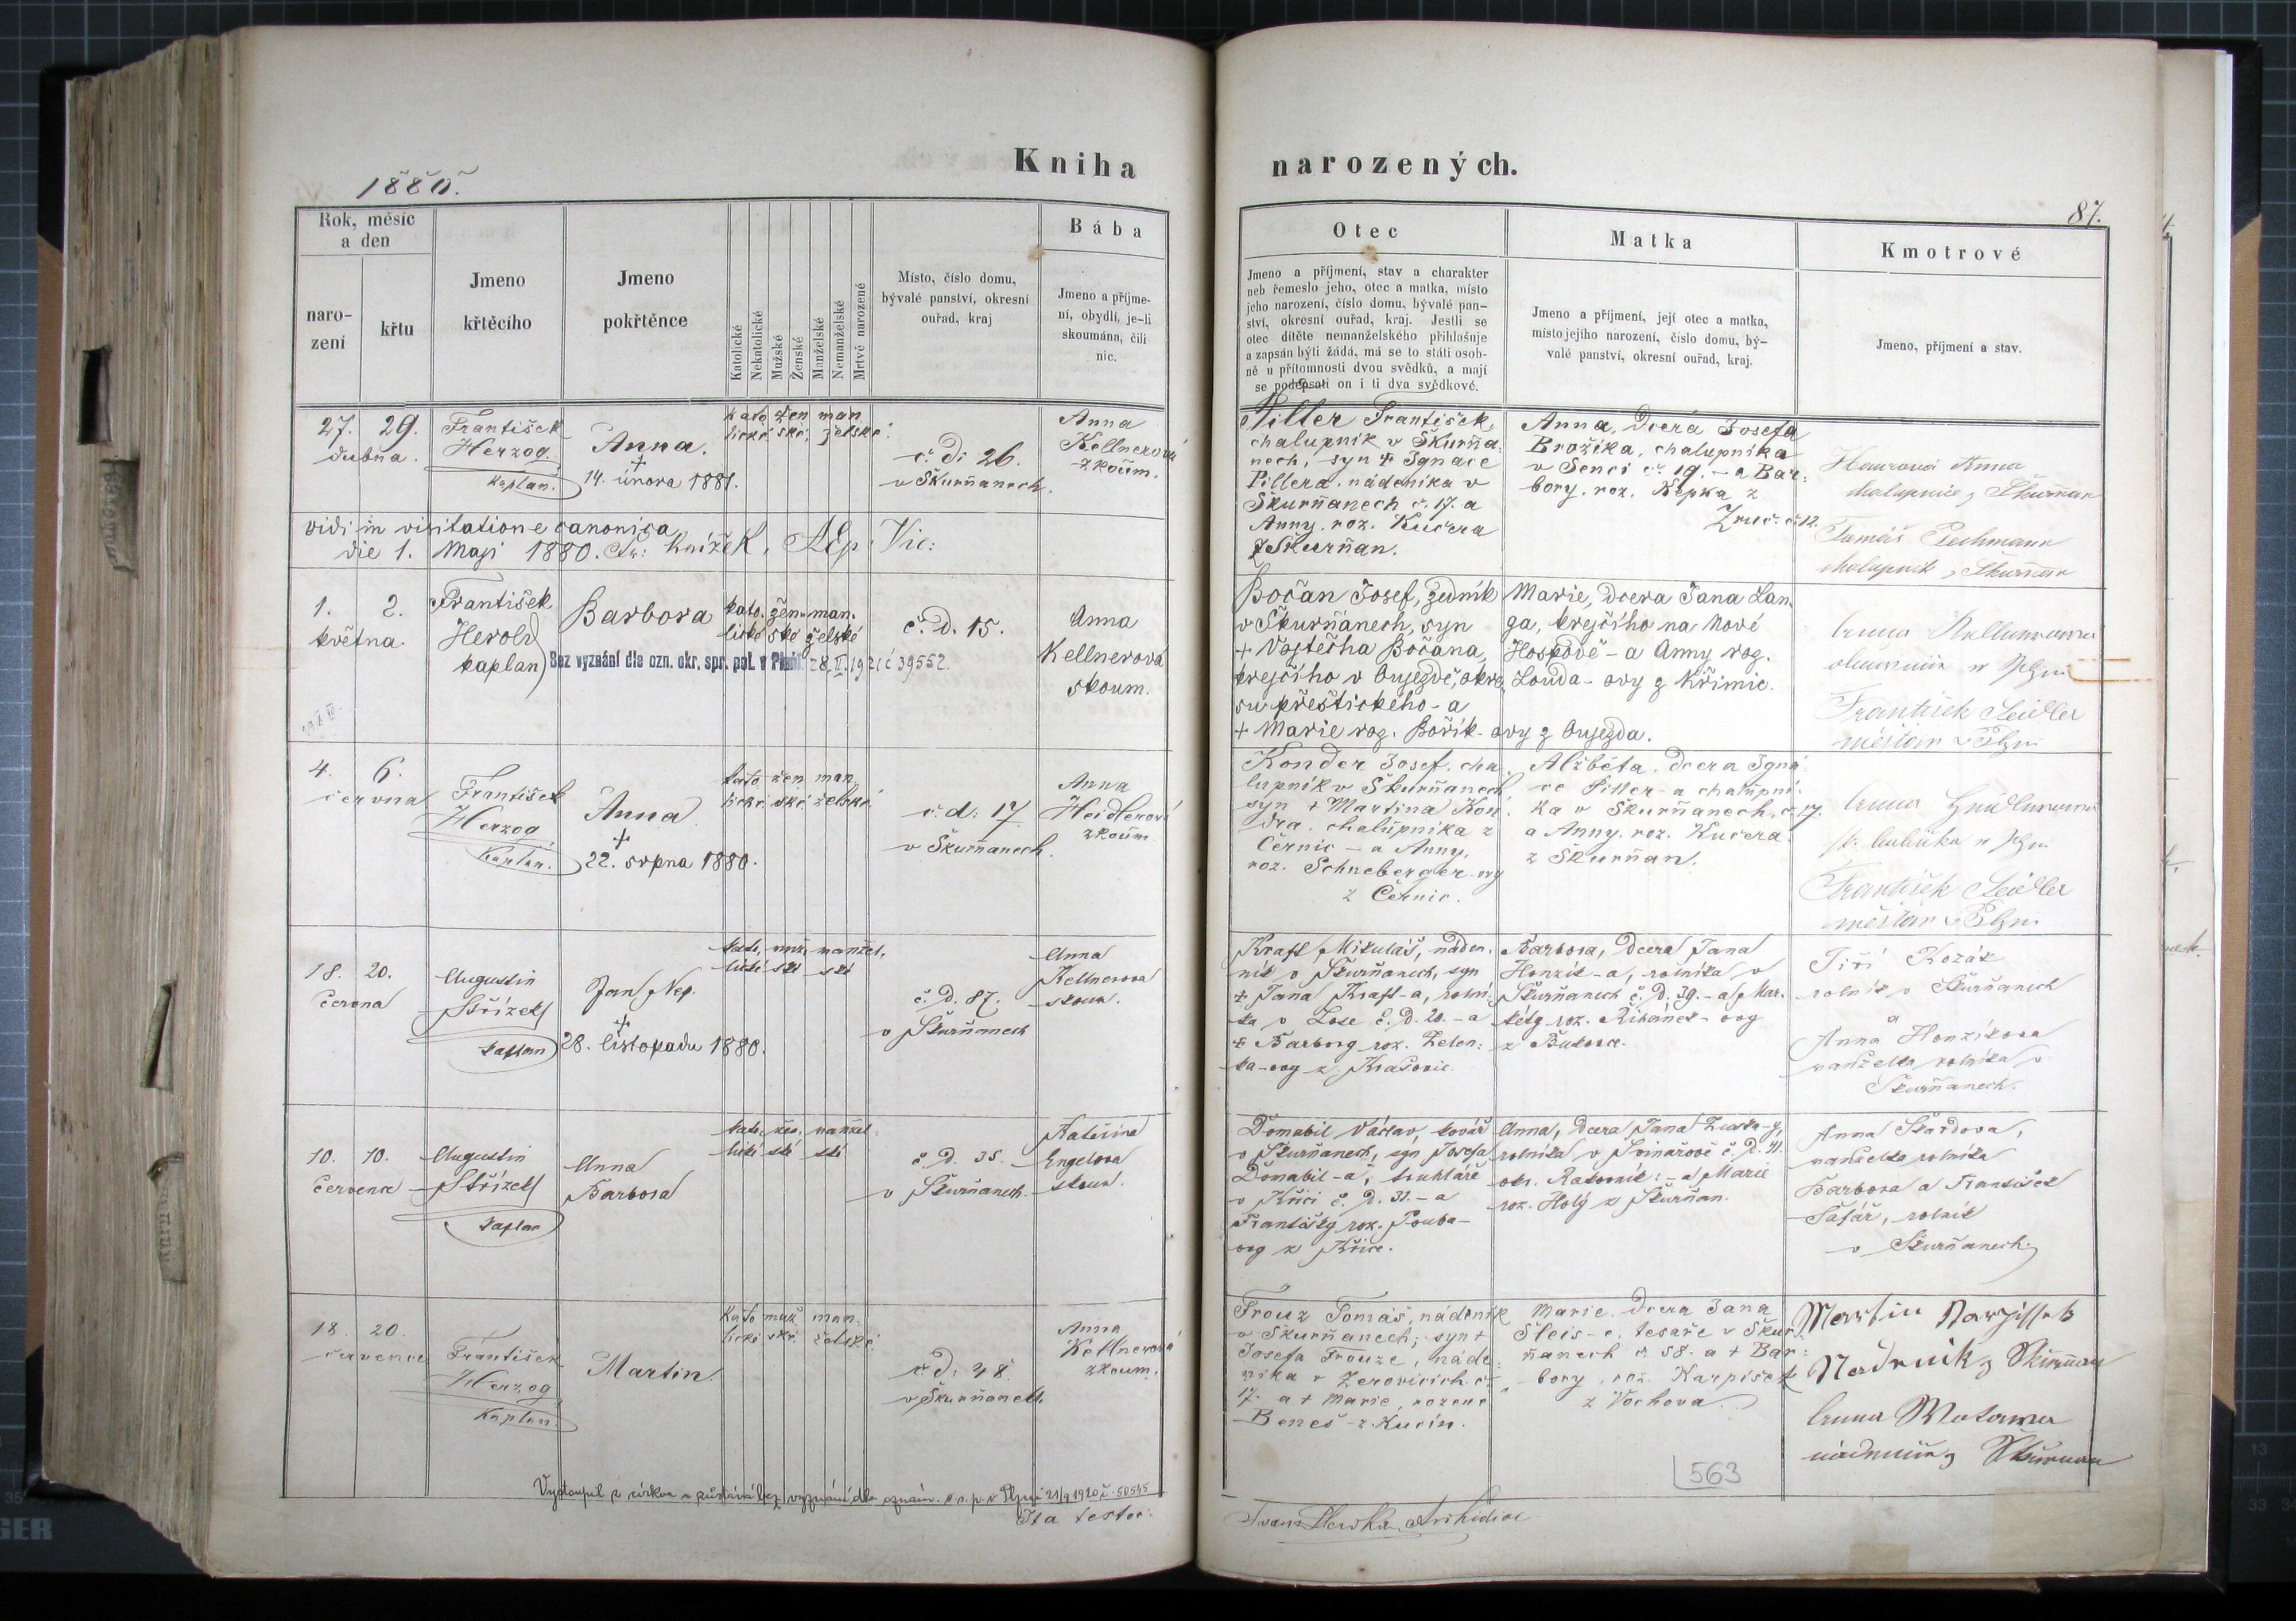 Kniha
narozených.
1880.
87.
Rok, měsíc
a den
naro-
zení
křtu
Jmeno
křtěcího
Jmeno
pokřtěnce
Katolické
Nekatolické
Mužské
Ženské
Manželské
Nemanželské
Mrtvě narozené
Místo, číslo domu,
bývalé panství, okresní
ouřad, kraj
Bába
Jmeno a příjme-
ní, obydlí, je-li
skoumána, čili
nic.
Otec
Jmeno a příjmení, stav a charakter
neb řemeslo jeho, otec a matka, místo
jeho narození, číslo domu, bývalé pan-
ství, okresní ouřad, kraj. Jestli se
otec dítěte nemanželského přihlašuje
a zapsán býti žádá, má se to státi osob-
ně u přítomnosti dvou svědků, a mají
se podepsati on i ti dva svědkové.
Matka
Jmeno a příjmení, její otec a matka,
místo jejího narození, číslo domu, bý-
valé panství, okresní ouřad, kraj.
Kmotrové
Jmeno, příjmení a stav.
27. 29.
dubna.
František
Herzog
Kaplan.
Anna.
+
14. února 1881.
kato žen man
lické ské, želské.
č. d: 26.
v Škurňanech.
Anna
Kellnerová
zkoum.
Piller František,
chalupník v Škurňa-
nech, syn + Ignace
Pillera, nádeníka v
Škurňanech č. 17. a
Anny, roz. Kučera
z Škurňan.
Anna, dcera Josefa
Brožíka, chalupníka
v Senci č. 19. - a Bar-
bory, roz. Kepka z
Zruč. č. 12.
Anna
chalupnice z Škurňan
Tomáš Pechmann
chalupník z Škurňan
vidi in visitatione canonica
die 1. Maji 1880. Knížek, AEp. Vic:
1. 2.
května.
František
Herold
kaplan
Barbora
kato- žen- man-
lické ské želské
Bez vyznání dle ozn. okr. spr. pol. v Plzni 28. 1921 č 39552.
č. d. 15.
Anna
Kellnerová
skoum.
Bočan Josef, zedník
v Škurňanech, syn
+ Vojtěcha Bočana,
krejčího v Oujezdě, okre-
su přeštického - a
+ Marie roz. Bořík-ovy z Oujezda.
Marie, dcera Jana Lan-
ga, krejčího na Nové
Hospodě - a Anny roz.
Louda-ovy z Křimic.
Anna
František Seidler
měšťan v Plzni
4. 6.
června
František
Herzog
Kaplan.
Anna
+
22. srpna 1880.
kato žen man
lické ské želské
č. d: 17
v Škurňanech.
Anna
Heidlerová
zkoum.
Konder Josef, cha-
lupník v Škurňanech
syn + Martina Kon-
dra, chalupníka z
Černic - a Anny,
roz. Schneberger-ovy
z Černic.
Alžběta, dcera Igna-
ce Piller-a chalupní-
ka v Škurňanech, č. 17.
a Anny, roz. Kučera
z Škurňan.
Anna
František Seidler
měšťan v Plzni
18. 20.
června
Augustin
Střízek
kaplan
Jan Nep.
+
28. listopadu 1880.
kato- muž- manžel-
lické ské ské
č. d. 87.
v Škurňanech
Anna
Kellnerova
skoum.
Kraft Mikuláš, náden-
ník v Škurňanech, syn
+ Jana Kraft-a, rolní-
ka v Lose č. d. 20. - a
+ Barbory roz. Zelen-
ka-ovy z Krašovic.
Barbora, dcera Jana
Honzík-a, rolníka v
Škurňanech č. d. 39. - a Mar-
kéty roz. - ovy
z
Jiří Kozák
rolník v Škurňanech
a
Anna Honzíkova
manželka rolníka v
Škurňanech.
10. 10.
července
Augustin
Střízek
kaplan
Anna
Barbora
kato- žen- manžel-
lické ské ské
č. d. 35.
v Škurňanech.
Kateřina
Engelova
skoum.
Domabil Václav, kovář
v Škurňanech, syn Josefa
Domabil-a, truhláře
v Křici č. d. 31. - a
Františky roz. Pouba-
ovy z Křice.
Anna, dcera Jana
rolníka v Svinařově č. d. 41.
okr. Rakovník: - a Marie
roz. Holý z Škurňan.
Anna Škardova,
manželka rolníka
Barbora a František
Šafář, rolník
v Škurňanech.
18. 20.
července
František
Herzog
Kaplan
Martin.
kato muž man-
lické ské želské
č. d: 48
v Škurňanech.
Anna
Kellnerová
zkoum.
Trouz Tomáš, nádeník
v Škurňanech, syn +
Josefa Trouze, náde-
níka v Žerovicích č.
17. a + Marie, rozené
Beneš - z Kucín.
Marie, dcera Jana
Šleis-e, tesaře v Škur-
ňanech č. 58. a + Bar-
bory, roz. Karpíšek
z Vochova.
Martin
Nadeník z Škurňan
Anna Wotawa
z Škurnan
Vystoupil z církve a zůstává bez vyznání dle oznám. o. s. p. v Plzni 21/9 1920 č. 50545
Ita testor:
563